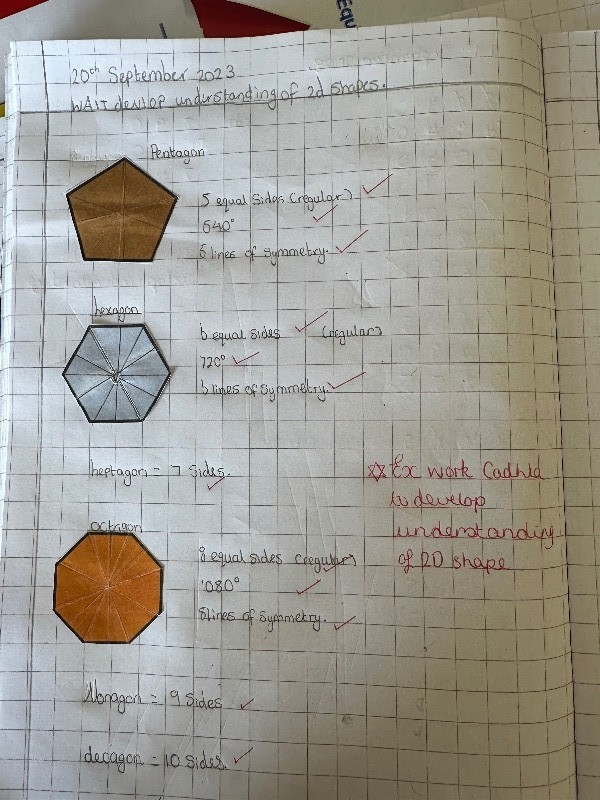 20th September 2023
WALT develop understanding of 2d shapes.
Pentagon
5 equal sides (regular)
540°
5 lines of symmetry.
hexagon
6 equal sides (regular)
720°
6 lines of symmetry.
heptagon = 7 sides.
☆ Ex work Cadhla
to develop
understanding
of 2D shape
octagon
8 equal sides (regular)
1080°
8 lines of symmetry.
Nonagon = 9 sides
decagon = 10 sides.